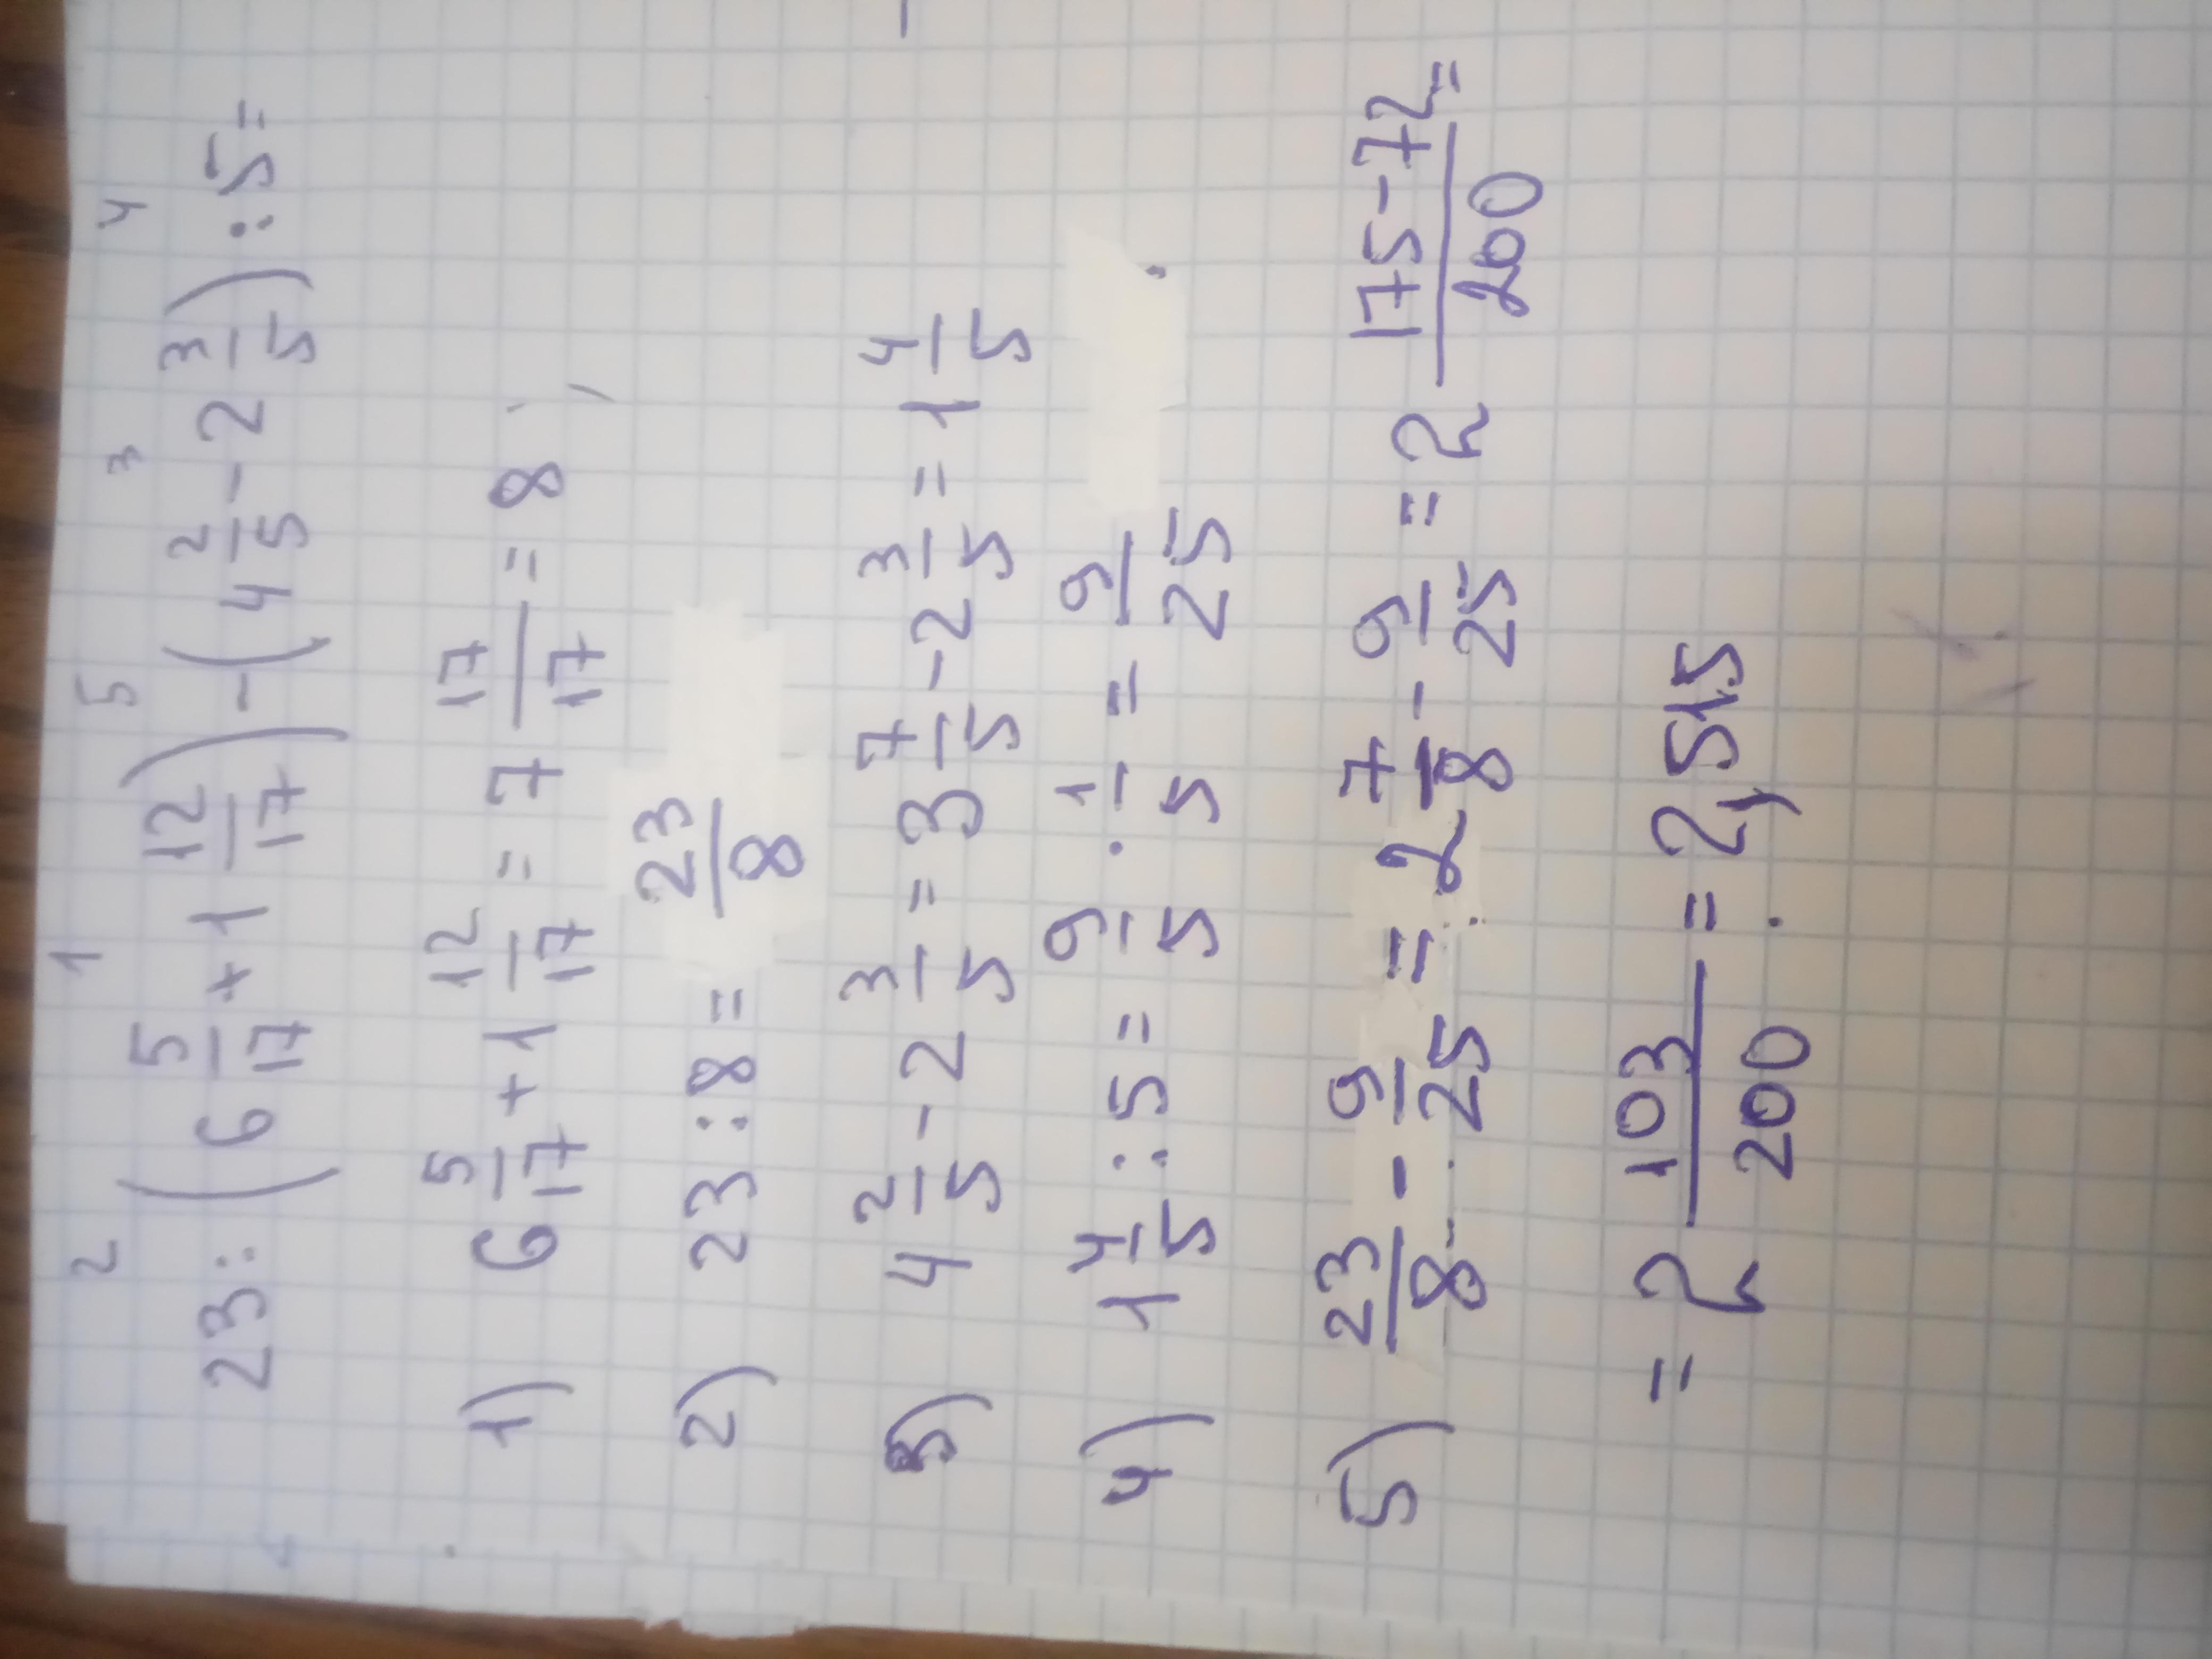 2 1 5 3 4
23 : (6 5/17 + 1 12/17) - (4 2/5 - 2 3/5) : 5 =
1) 6 5/17 + 1 12/17 = 7 17/17 = 8
2) 23 : 8 = 23/8
3) 4 2/5 - 2 3/5 = 3 7/5 - 2 3/5 = 1 4/5
4) 1 4/5 : 5 = 9/5 · 1/5 = 9/25
5) 23/8 - 9/25 = 2 7/8 - 9/25 = 2 175-72/200 =
= 2 103/200 = 2,515